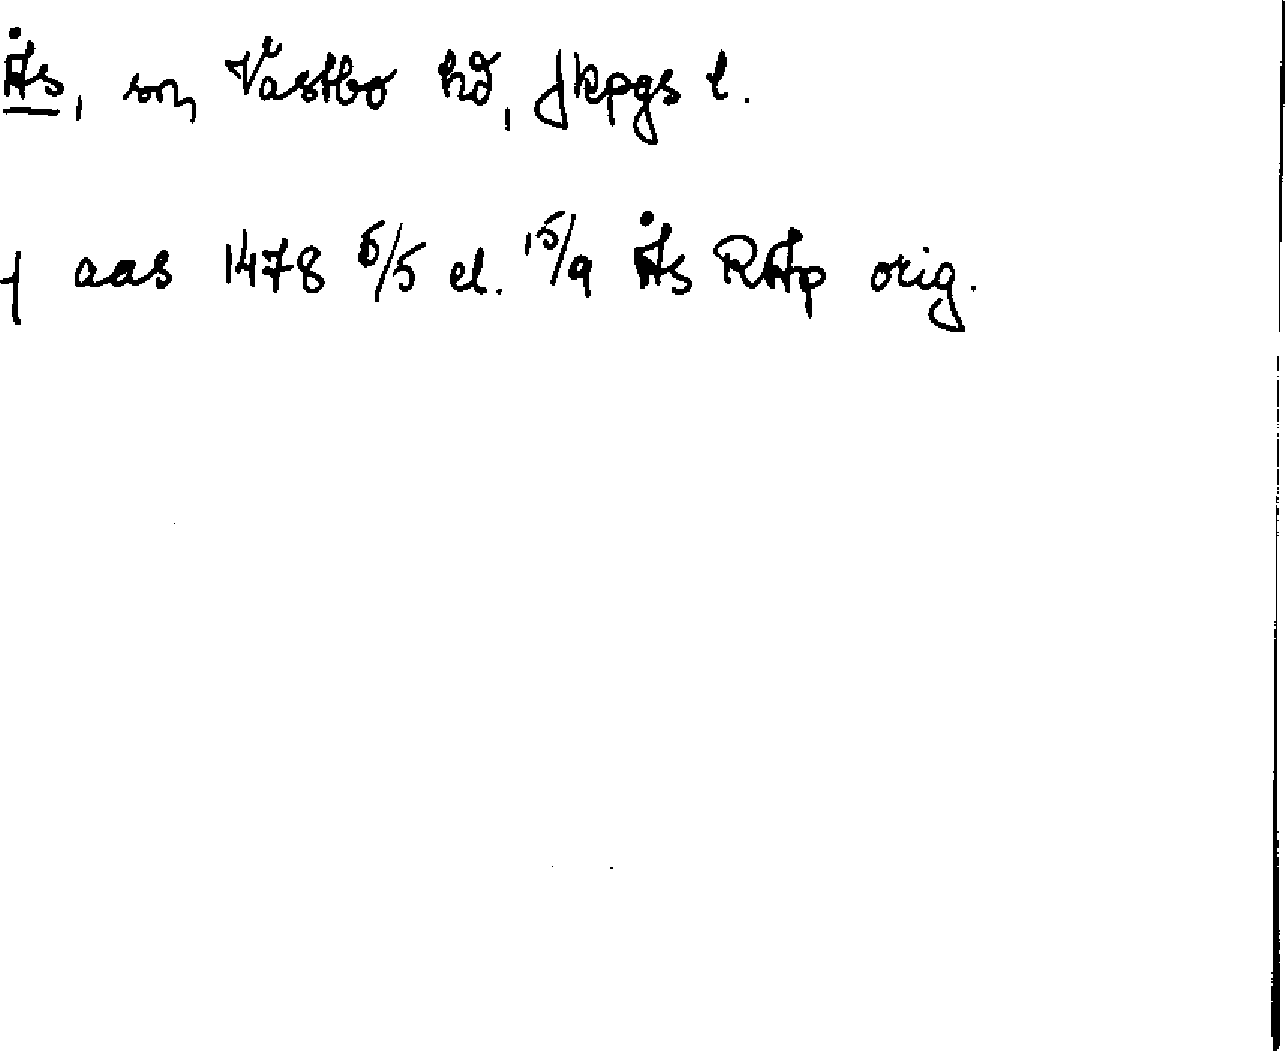 Ås, sn, Västbo hd, Jkpgs l.
j aas 1478 5/5 el. 15/9 Ås RAp orig.